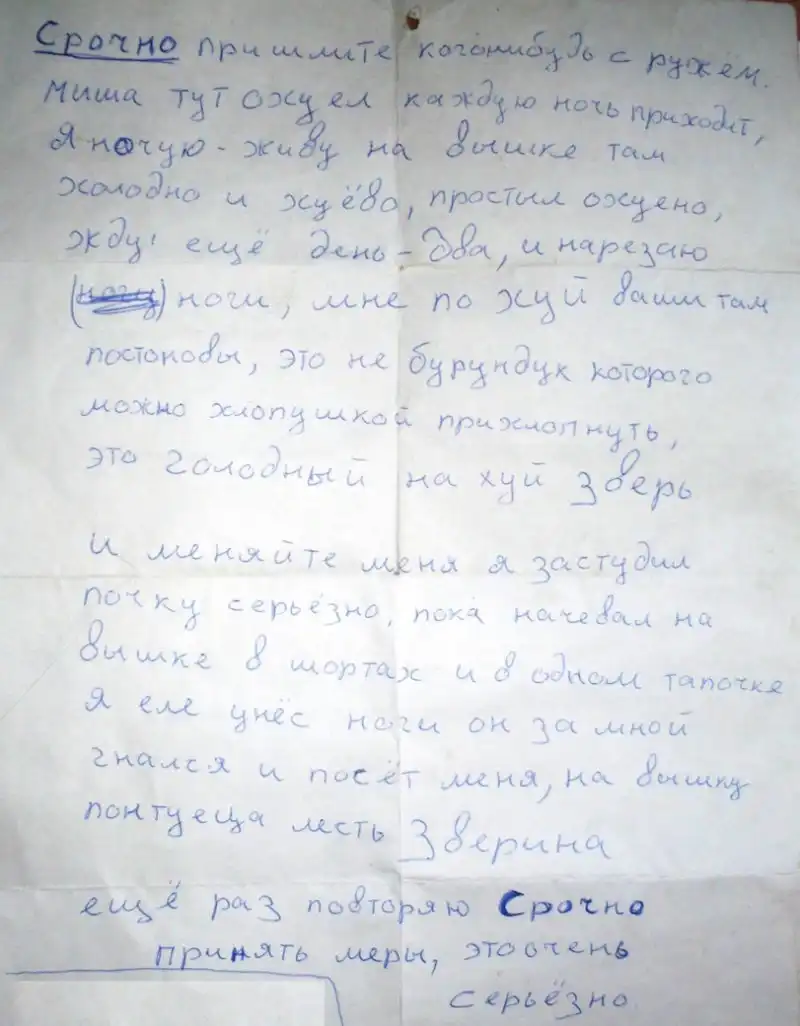 Срочно пришлите когонибудь с ружём.
Миша тут охуел каждую ночь приходит,
Я ночую - живу на вышке там
холодно и хуёво, простыл охуено,
жду ещё день - два, и нарезаю
ноги, мне по хуй ваши там
постоновы, это не бурундук которого
можно хлопушкой прихлопнуть,
это голодный на хуй зверь
и меняйте меня я застудил
почку серьёзно, пока начевал на
вышке в шортах и в одном тапочке
я еле унёс ноги он за мной
гнался и посёт меня, на вышку
понтуеща лесть Зверина
ещё раз повторяю Срочно
принять меры, это очень
серьёзно